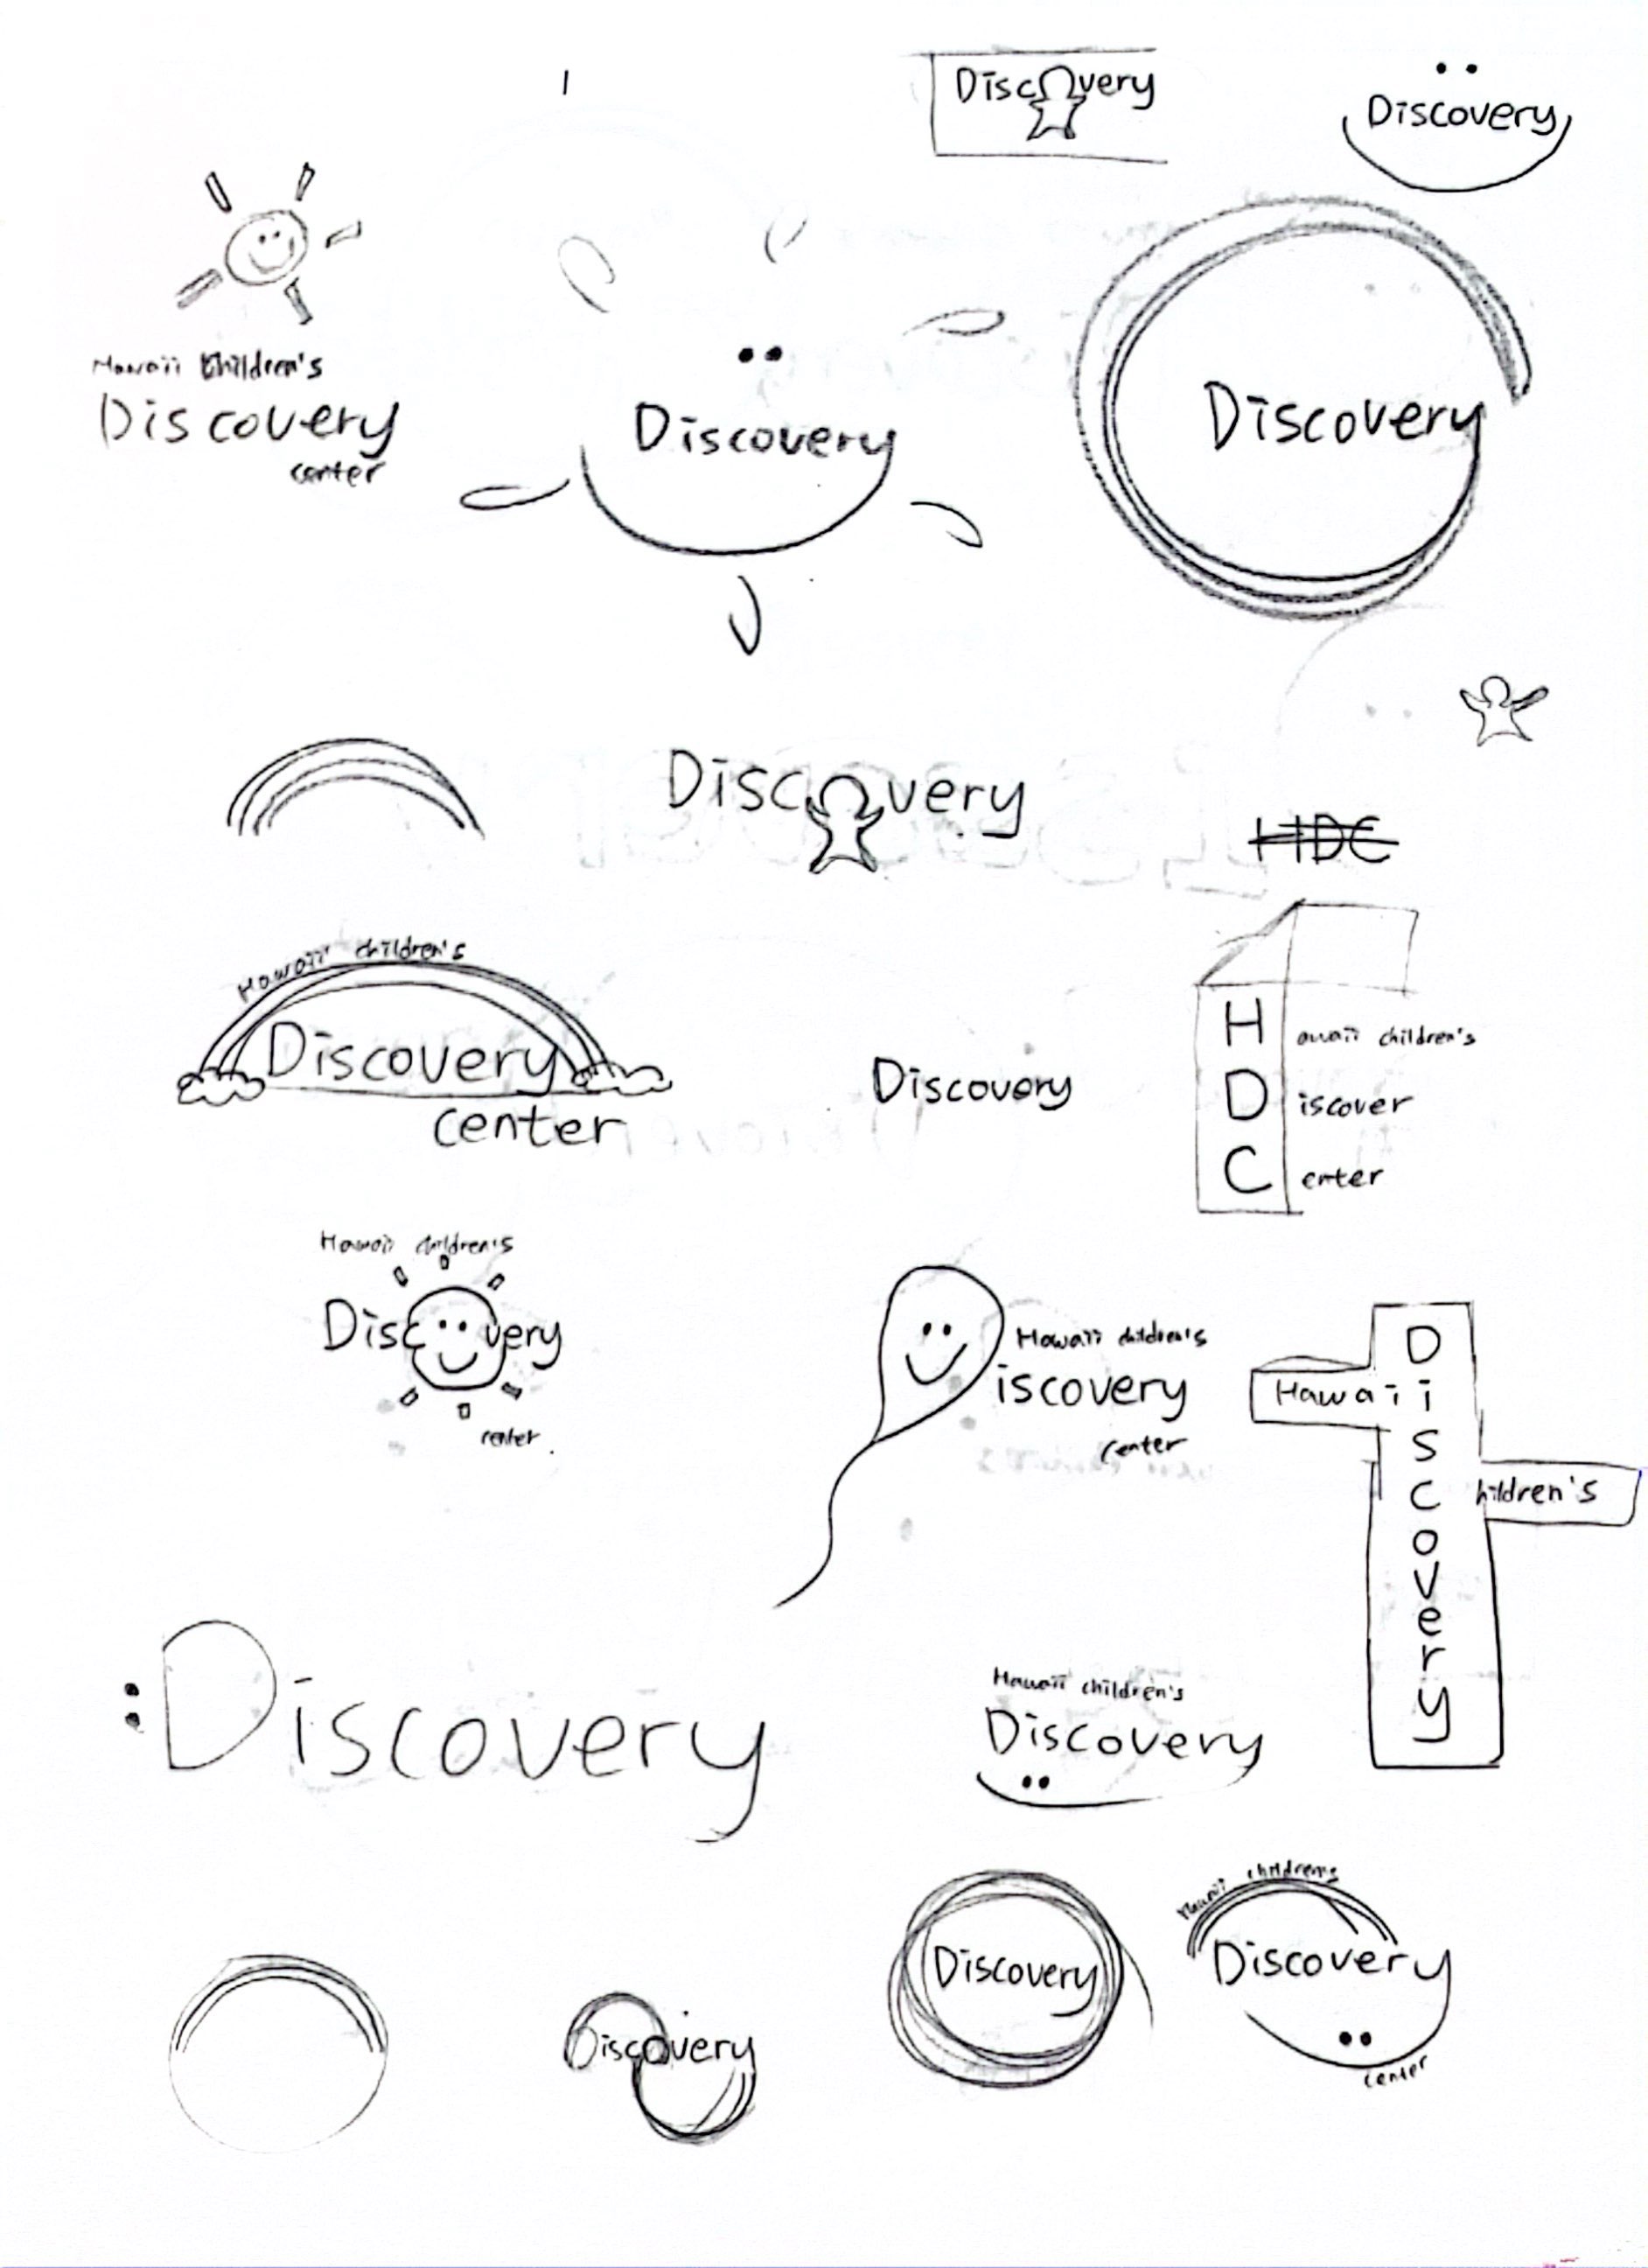 Discovery
Discovery
Hawaii Children's
Discovery
center
Discovery
Discovery
Discovery
HDC
Hawaii children's
Discovery
center
Discovery
Hawaii children's
Discover
Center
Hawaii children's
Discovery
center
Hawaii children's
iscovery
center
Discovery
Hawaii
hildren's
:Discovery
Hawaii children's
Discovery
Discovery
Hawaii childrens
Discovery
center
Discovery